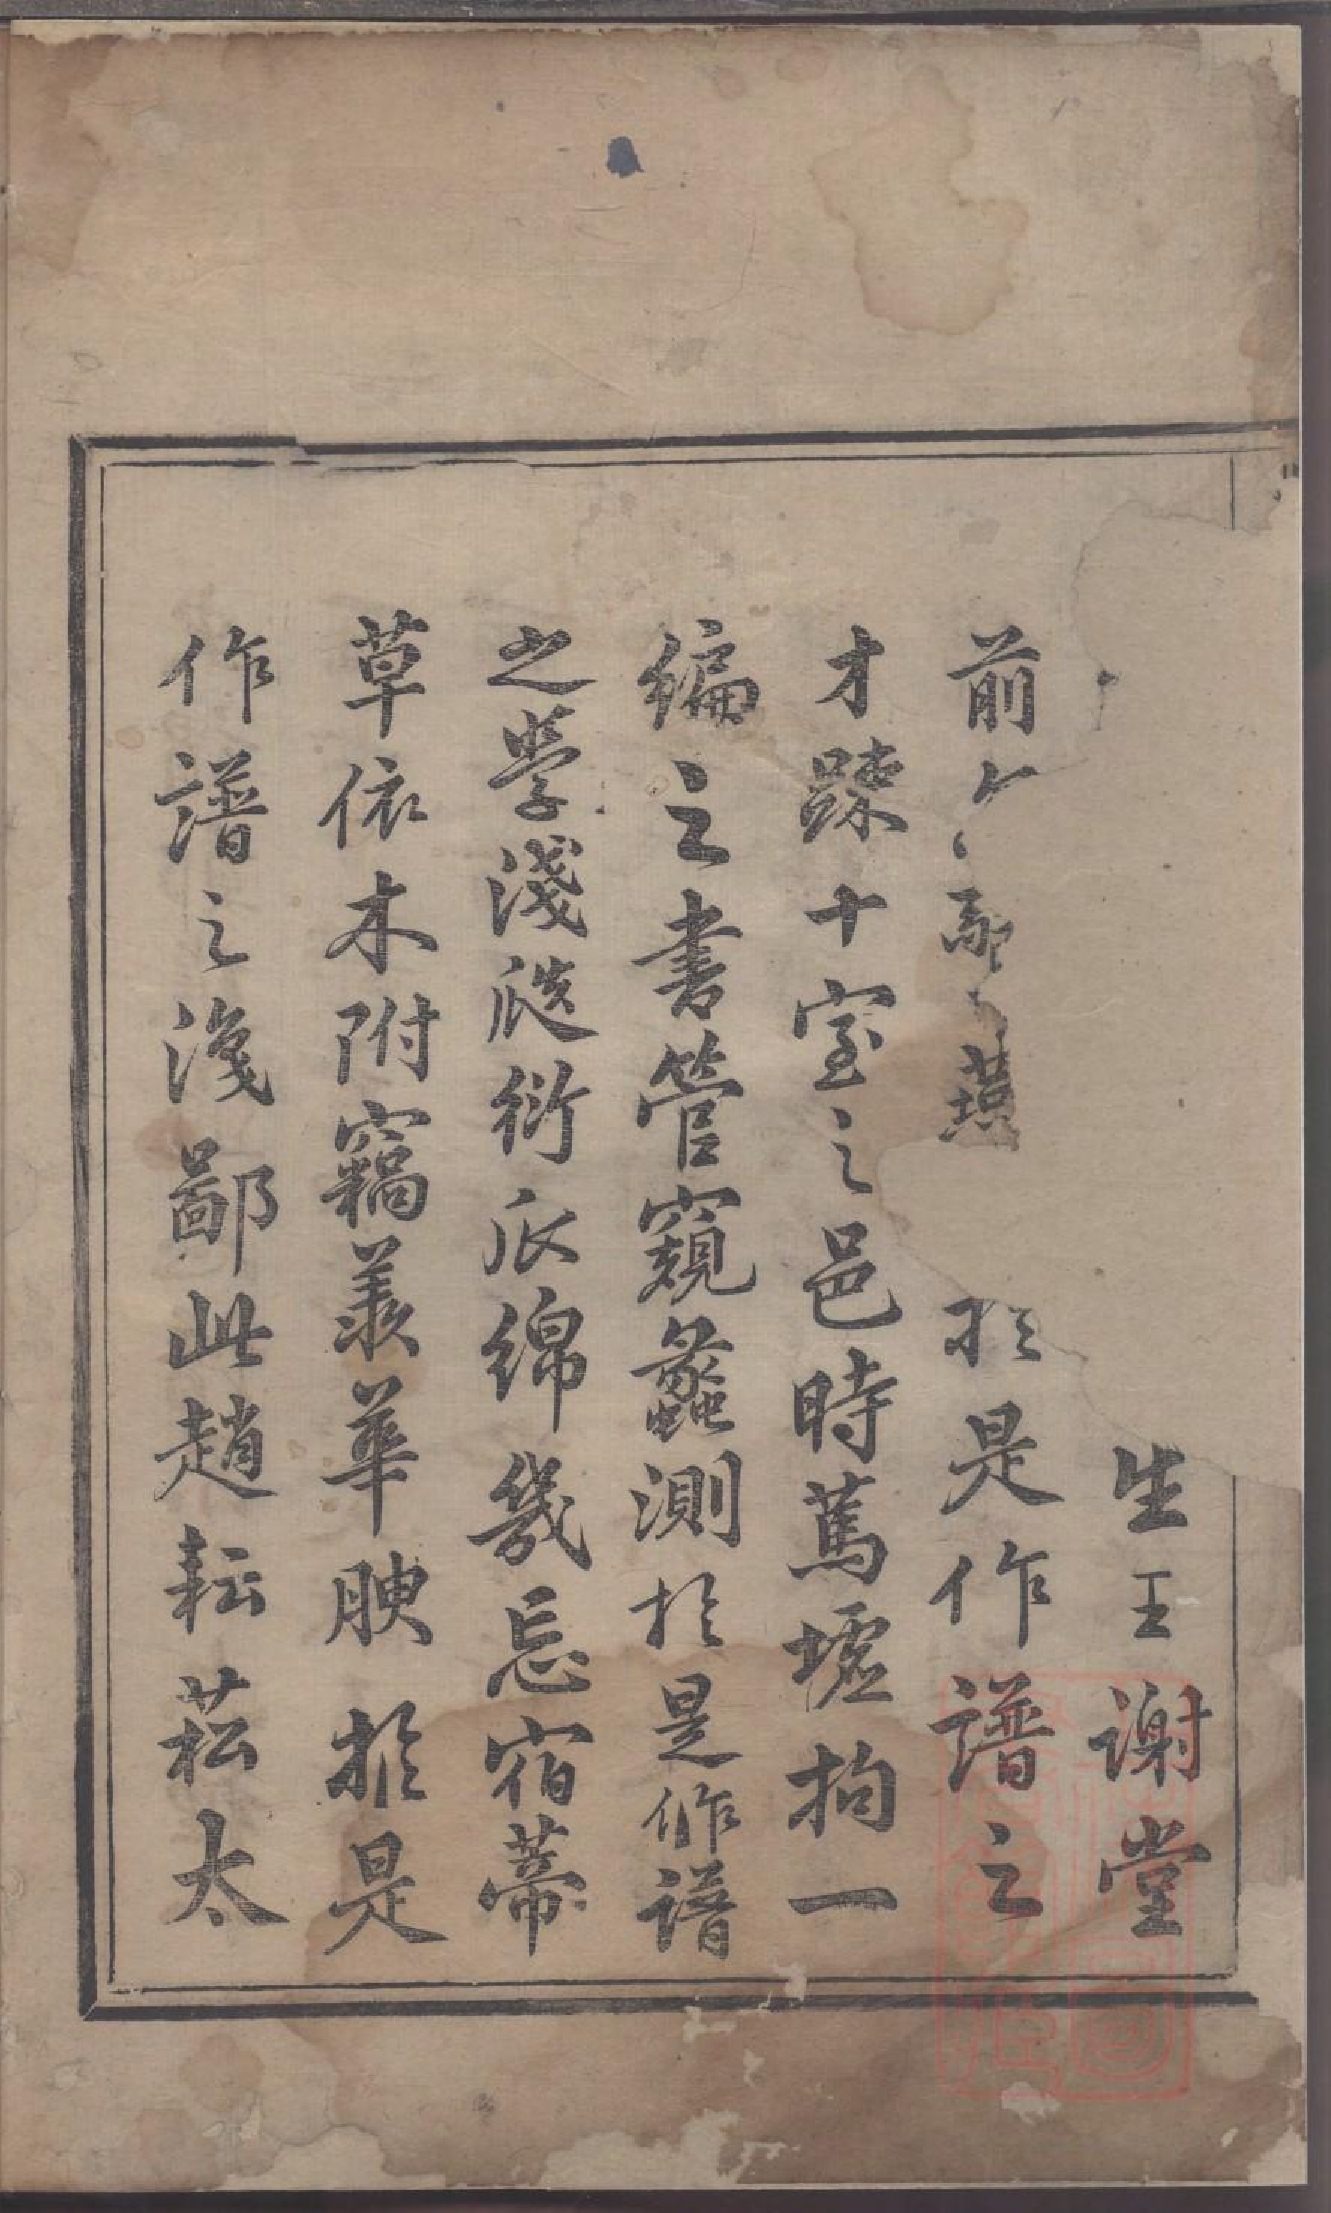 生王謝堂
前 燕 於是作譜之
才踈十室之邑時蔫墟拘一
編之書管窺蠡測於是作譜
之學淺 衍瓜綿幾忘宿蒂
草依木附竊羨華腴於是
作譜之淺鄙此趙耘菘太